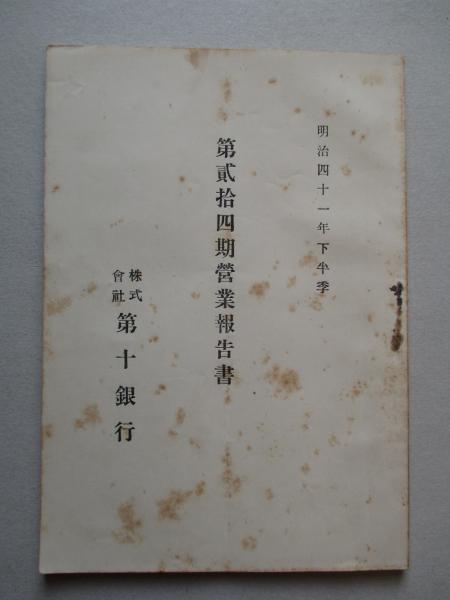 明治四十一年下半季
第貳拾四期營業報告書
株式會社第十銀行